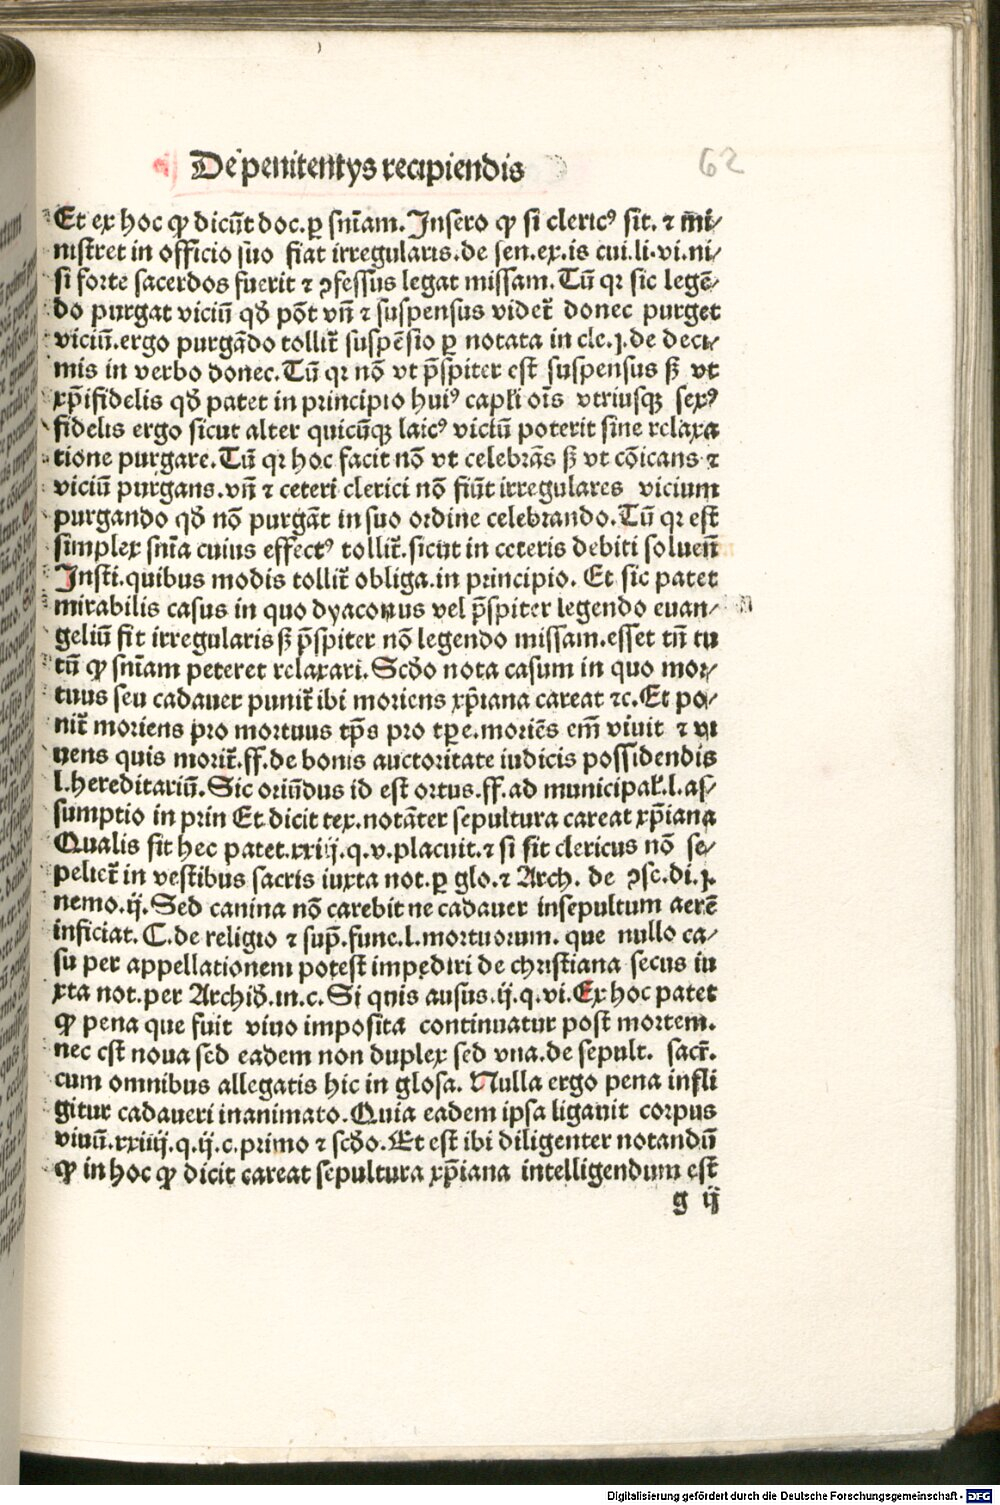 De penitentijs recipiendis
62
Et ex hoc ꝙ dicūt doc. ꝑ sn̄iam. Insero ꝙ si clericꝰ sit. ⁊ mi-
nistret in officio suo fiat irregularis. de sen. ex. is cui. li. vi. ni-
si forte sacerdos fuerit ⁊ ꝯfessus legat missam. Tū qr sic legē-
do purgat viciū qd̄ pōt vn̄ ⁊ suspensus videt̄ donec purget
viciū. ergo purgādo tollit̄ suspēsio ꝑ notata in cle. j. de deci-
mis in verbo donec. Tū qr nō vt p̄spiter est suspensus sꝫ vt
xp̄ifidelis qd̄ patet in principio huiꝰ capl̄i oīs vtriusqꝫ sexꝰ
fidelis ergo sicut alter quicūqꝫ laicꝰ viciū poterit sine relaxa
tione purgare. Tū qr hoc facit nō vt celebrās sꝫ vt cōicans ⁊
viciū purgans. vn̄ ⁊ ceteri clerici nō fiūt irregulares vicium
purgando qd̄ nō purgāt in suo ordine celebrando. Tū qr est
simplex sn̄ia cuius effectꝰ tollit̄. sicut in ceteris debiti soluen̄
Insti. quibus modis tollit̄ obliga. in principio. Et sic patet
mirabilis casus in quo dyaconus vel p̄spiter legendo euan-
geliū fit irregularis sꝫ p̄spiter nō legendo missam. esset tn̄ tu
tū ꝙ sn̄iam peteret relaxari. Scd̄o nota casum in quo mor-
tuus seu cadauer punit̄ ibi moriens xp̄iana careat ⁊c. Et po-
nit̄ moriens pro mortuus tp̄s pro tꝑe. moriēs em̄ viuit ⁊ vi
uens quis morit̄. ff. de bonis auctoritate iudicis possidendis
l. hereditariū. Sic oriūdus id est ortus. ff. ad municipal̄. l. as-
sumptio in prin Et dicit tex. notāter sepultura careat xp̄iana
Qualis sit hec patet. xxiij. q. v. placuit. ⁊ si sit clericus nō se-
peliet̄ in vestibus sacris iuxta not. ꝑ glo. ⁊ Arch. de ꝯsc. di. j.
nemo. ij. Sed canina nō carebit ne cadauer insepultum aerē
inficiat. C. de religio ⁊ sup̄. func. l. mortuorum. que nullo ca-
su per appellationem potest impediri de christiana secus iu
xta not. per Archid̄. in. c. Si quis ausus. ij. q. vi. Ex hoc patet
ꝙ pena que fuit viuo imposita continuatur post mortem.
nec est noua sed eadem non duplex sed vna. de sepult. sacr̄.
cum omnibus allegatis hic in glosa. Nulla ergo pena infli
gitur cadaueri inanimato. Quia eadem ipsa ligauit corpus
viuū. xxiiij. q. ij. c. primo ⁊ scd̄o. Et est ibi diligenter notandū
ꝙ in hoc ꝙ dicit careat sepultura xp̄iana intelligendum est
g ij
Digitalisierung gefördert durch die Deutsche Forschungsgemeinschaft - DFG